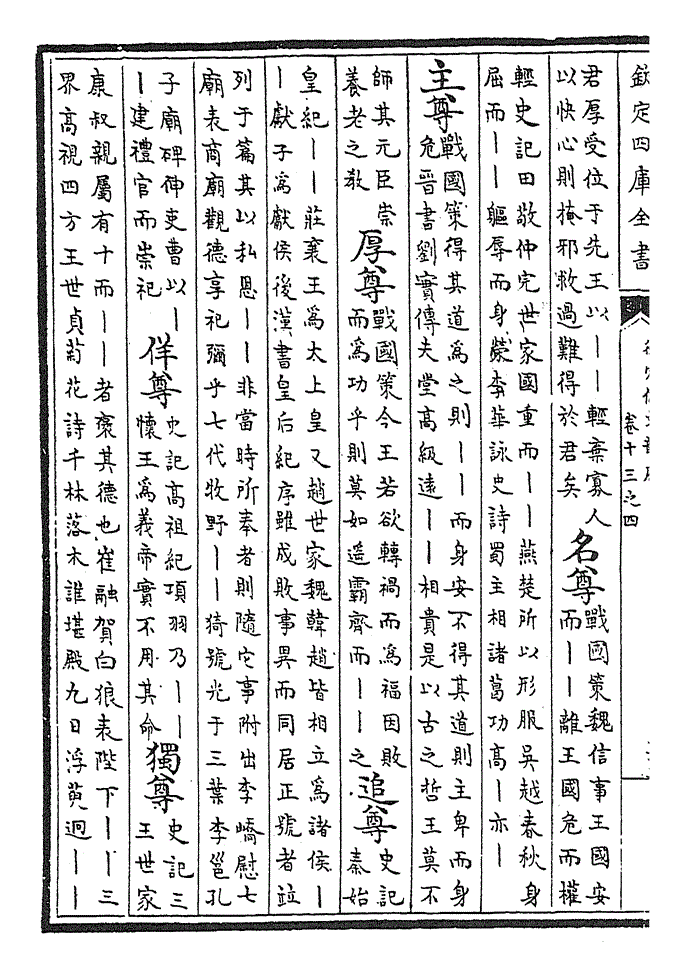 欽定四庫全書
卷十三之四
君厚受位于先王以丨丨輕棄寡人
以快心則掩邪救過難得於君矣
名尊
戰國策魏信事王國安
而丨丨離王國危而權
輕史記田敬仲完世家國重而丨丨燕楚所以形服吳越春秋身
屈而丨丨軀辱而身榮李華詠史詩蜀主相諸葛功高丨亦丨
主尊
戰國策得其道為之則丨丨而身安不得其道則主卑而身
危晉書劉實傳夫堂高級遠丨丨相貴是以古之哲王莫不
師其元臣崇
養老之教
厚尊
戰國策今王若欲轉禍而為福因敗
而為功乎則莫如遥霸齊而丨丨之
追尊
史記
秦始
皇紀丨丨莊襄王為太上皇又趙世家魏韓趙皆相立為諸侯丨
丨獻子為獻侯後漢書皇后紀序雖成敗事異而同居正號者竝
列于篇其以私恩丨丨非當時所奉者則隨它事附出李嶠慰七
廟表商廟觀德享祀彌乎七代牧野丨丨猗號光于三葉李邕孔
子廟碑伸吏曹以丨
丨建禮官而崇祀
佯尊
史記高祖紀項羽乃丨丨
懷王為義帝實不用其命
獨尊
史記三
王世家
康叔親屬有十而丨丨者褒其德也崔融賀白狼表陛下丨丨三
界高視四方王世貞菊花詩千林落木誰堪殿九日浮萸迥丨丨